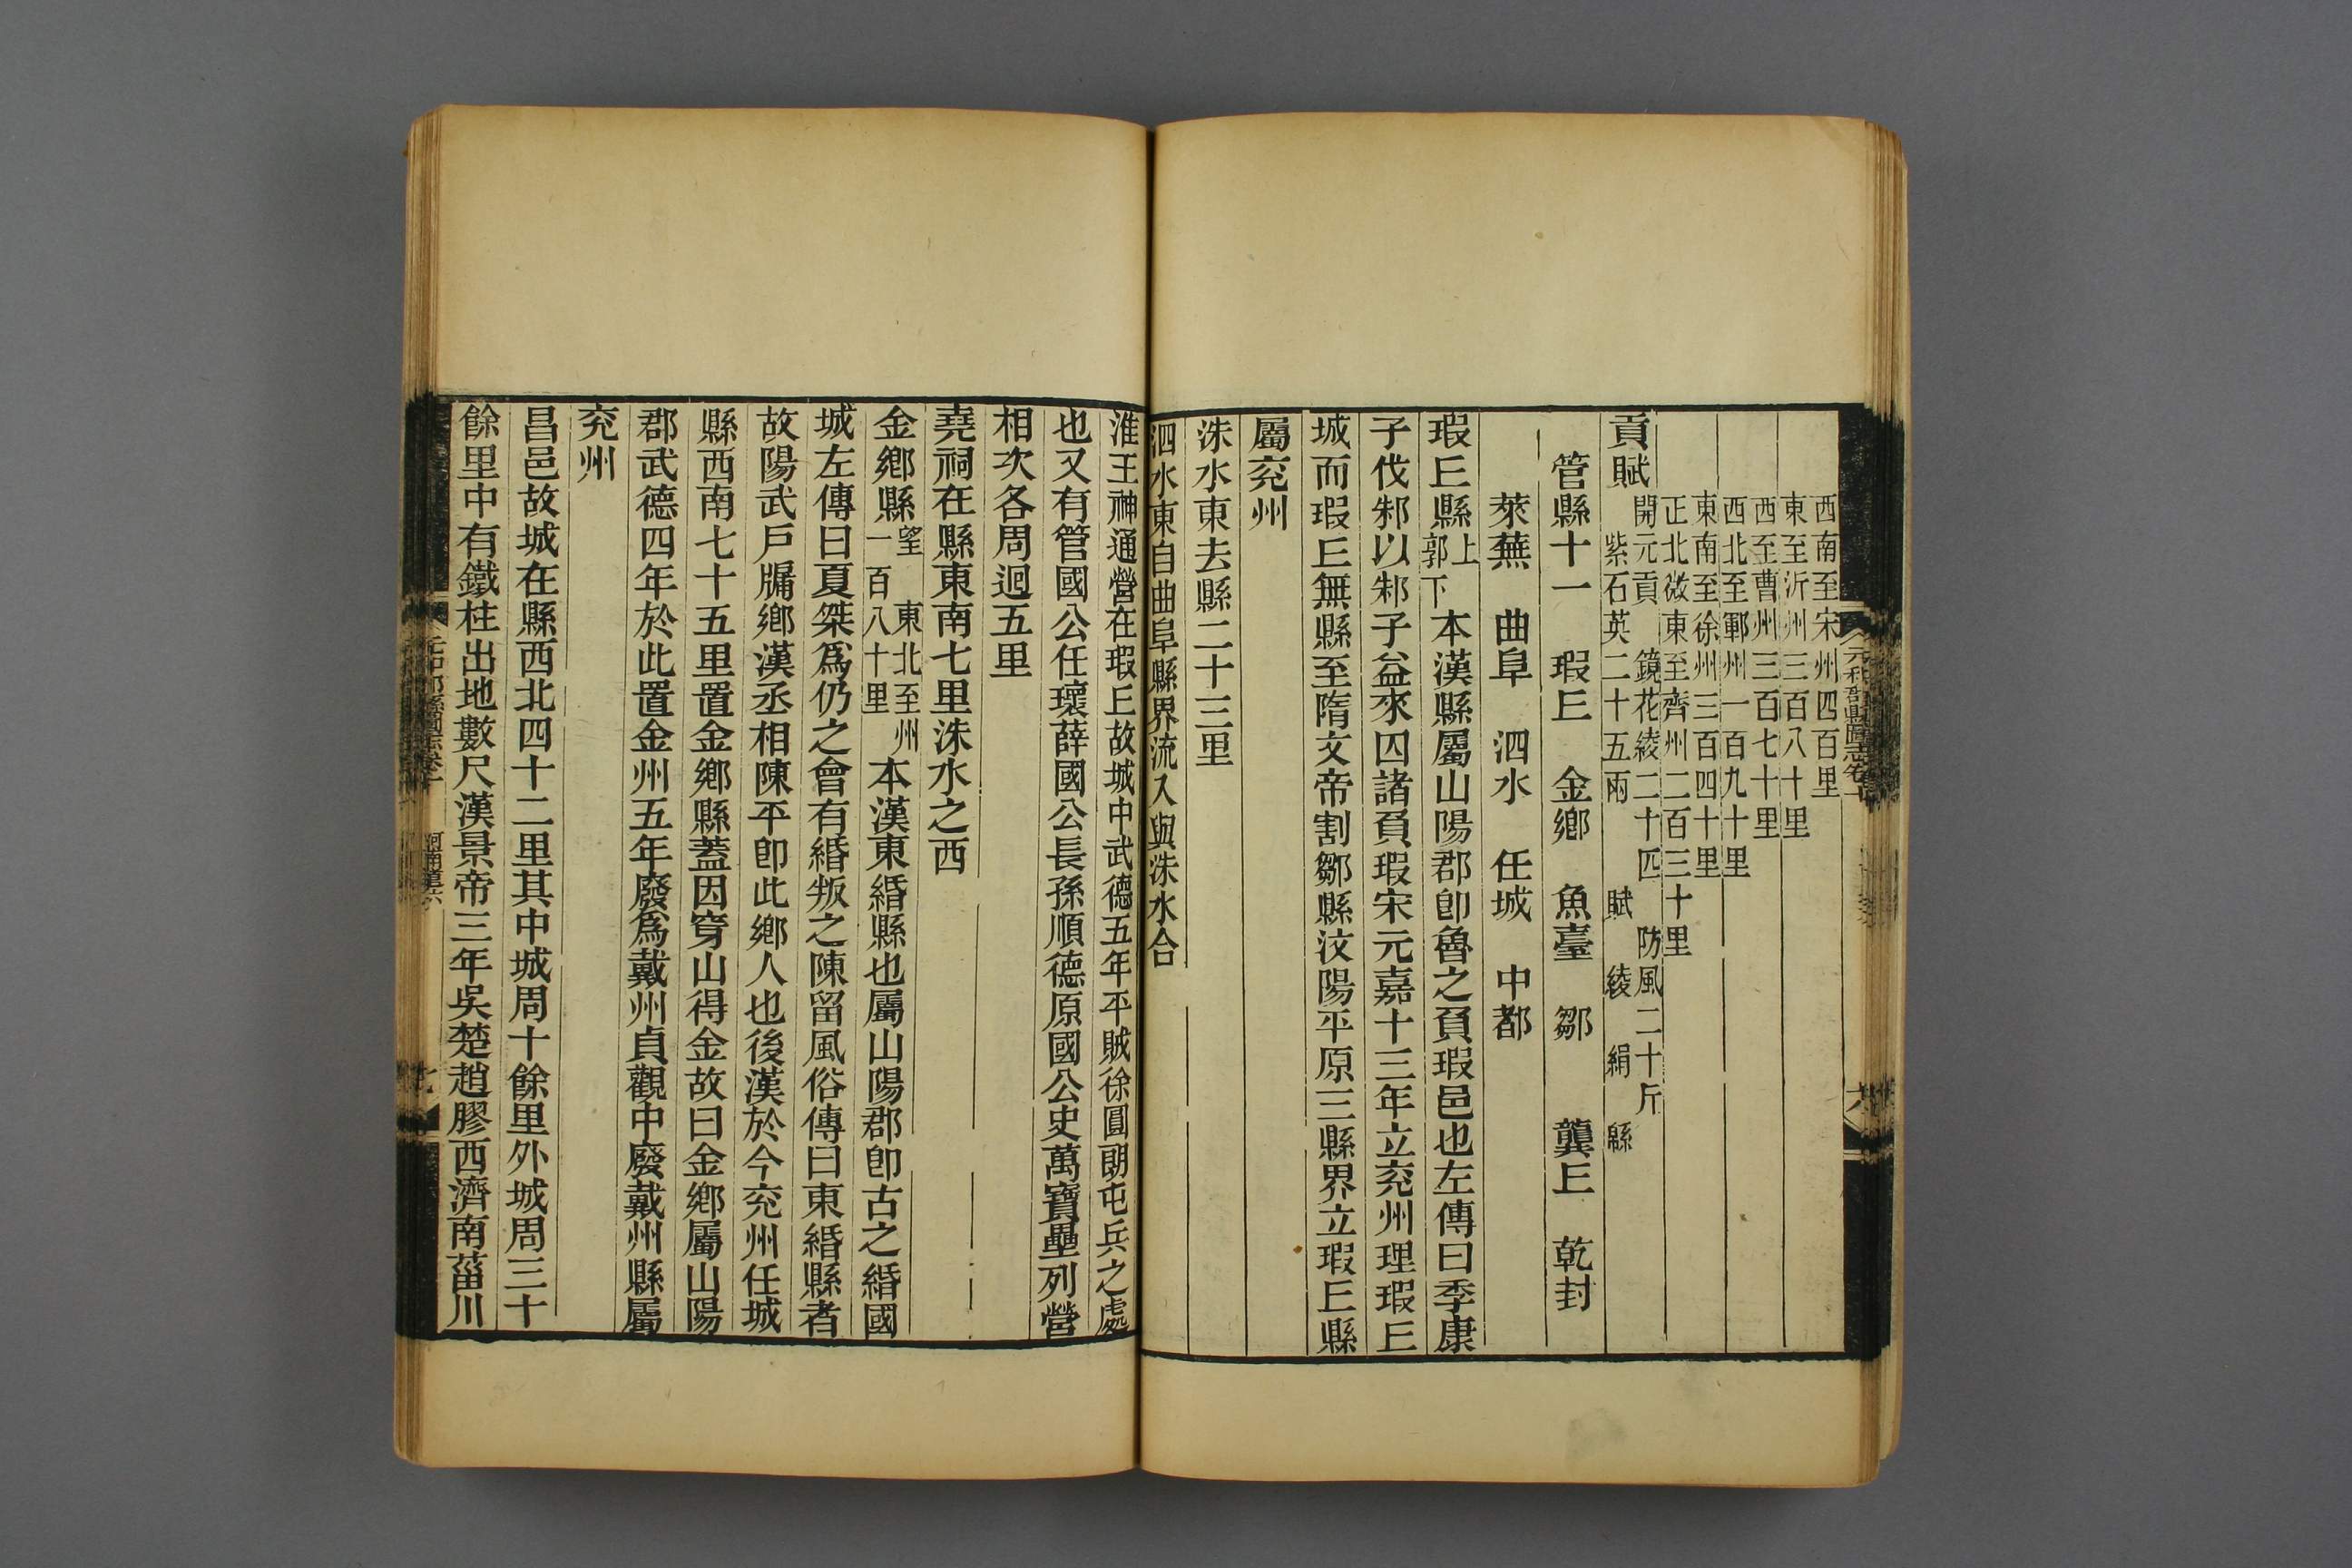 西南至宋州四百里
東至沂州三百八十里
西至曹州三百七十里
西北至鄆州一百九十里
東南至徐州三百四十里
正北微東至齊州二百三十里
貢賦 開元貢 鏡花綾二十四 防風二十斤
紫石英二十五兩 賦 綾 絹 緜
管縣十一 瑕丘 金鄉 魚臺 鄒 龔丘 乾封
萊蕪 曲阜 泗水 任城 中都
瑕丘縣上郭下 本漢縣屬山陽郡卽魯之負瑕邑也左傳曰季康
子伐邾以邾子益來囚諸負瑕宋元嘉十三年立兖州理瑕丘
城而瑕丘無縣至隋文帝割鄒縣汶陽平原三縣界立瑕丘縣
屬兖州
洙水東去縣二十三里
泗水東自曲阜縣界流入與洙水合
淮王神通營在瑕丘故城中武德五年平賊徐圓朗屯兵之處
也又有管國公任瓌薛國公長孫順德原國公史萬寶壘列營
相次各周迴五里
堯祠在縣東南七里洙水之西
金鄉縣望 東北至州一百八十里 本漢東緡縣也屬山陽郡卽古之緡國
城左傳曰夏桀爲仍之會有緡叛之陳留風俗傳曰東緡縣者
故陽武戸牖鄉漢丞相陳平卽此鄉人也後漢於今兖州任城
縣西南七十五里置金鄉縣蓋因穿山得金故曰金鄉屬山陽
郡武德四年於此置金州五年廢爲戴州貞觀中廢戴州縣屬
兖州
昌邑故城在縣西北四十二里其中城周十餘里外城周三十
餘里中有鐵柱出地數尺漢景帝三年吳楚趙膠西濟南菑川
元和郡縣圖志卷十
六